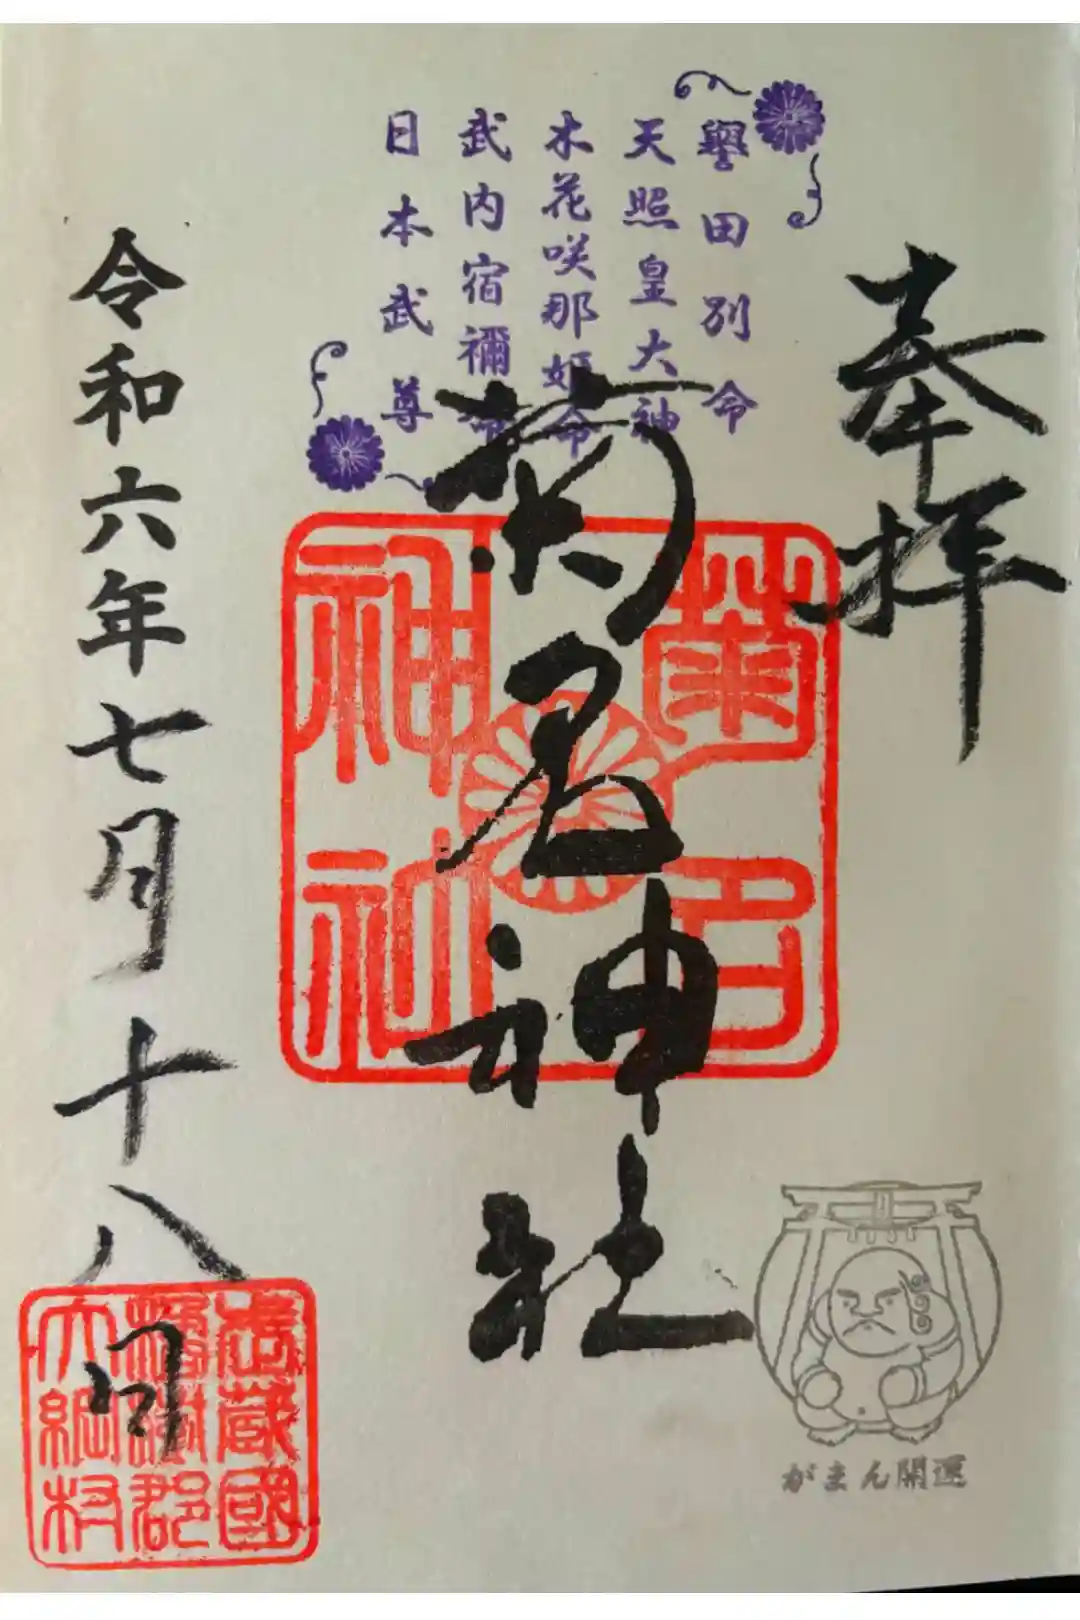 奉拝
譽田別命
天照皇大神
木花咲那姫命
武内宿禰命
日本武尊
菊名神社
菊名
神社
令和六年七月十八日
武蔵國
橘樹郡
大綱村
がまん開運